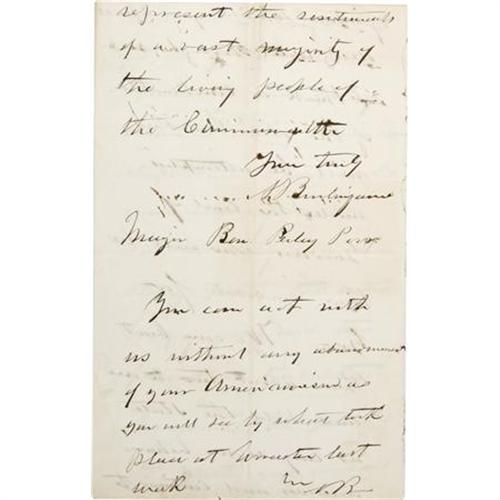 represent the sentiments
of a vast majority of
the living people of
the Commonwealth
Yours truly
A Burlingame
Major Ben Perley Poore
You can act with
us without any abandonment
of your Americanism as
you will see by what took
place at Worcester last
week